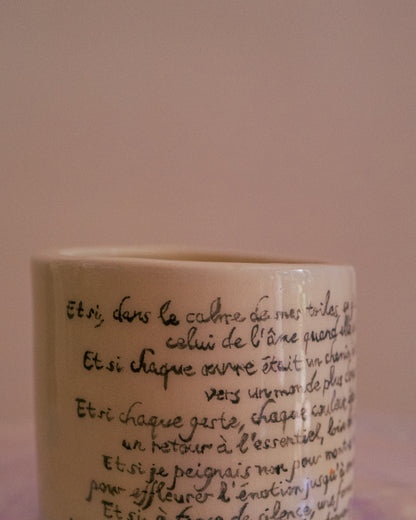 Et si, dans le calme de mes toiles,
celui de l'âme quand elle
Et si chaque œuvre était un chemin
vers un monde plus
Et si chaque geste, chaque couleur
un retour à l'essentiel, loin
Et si je peignais non pour
pour effleurer l'émotion jusqu'à
Et si à force de silence, une